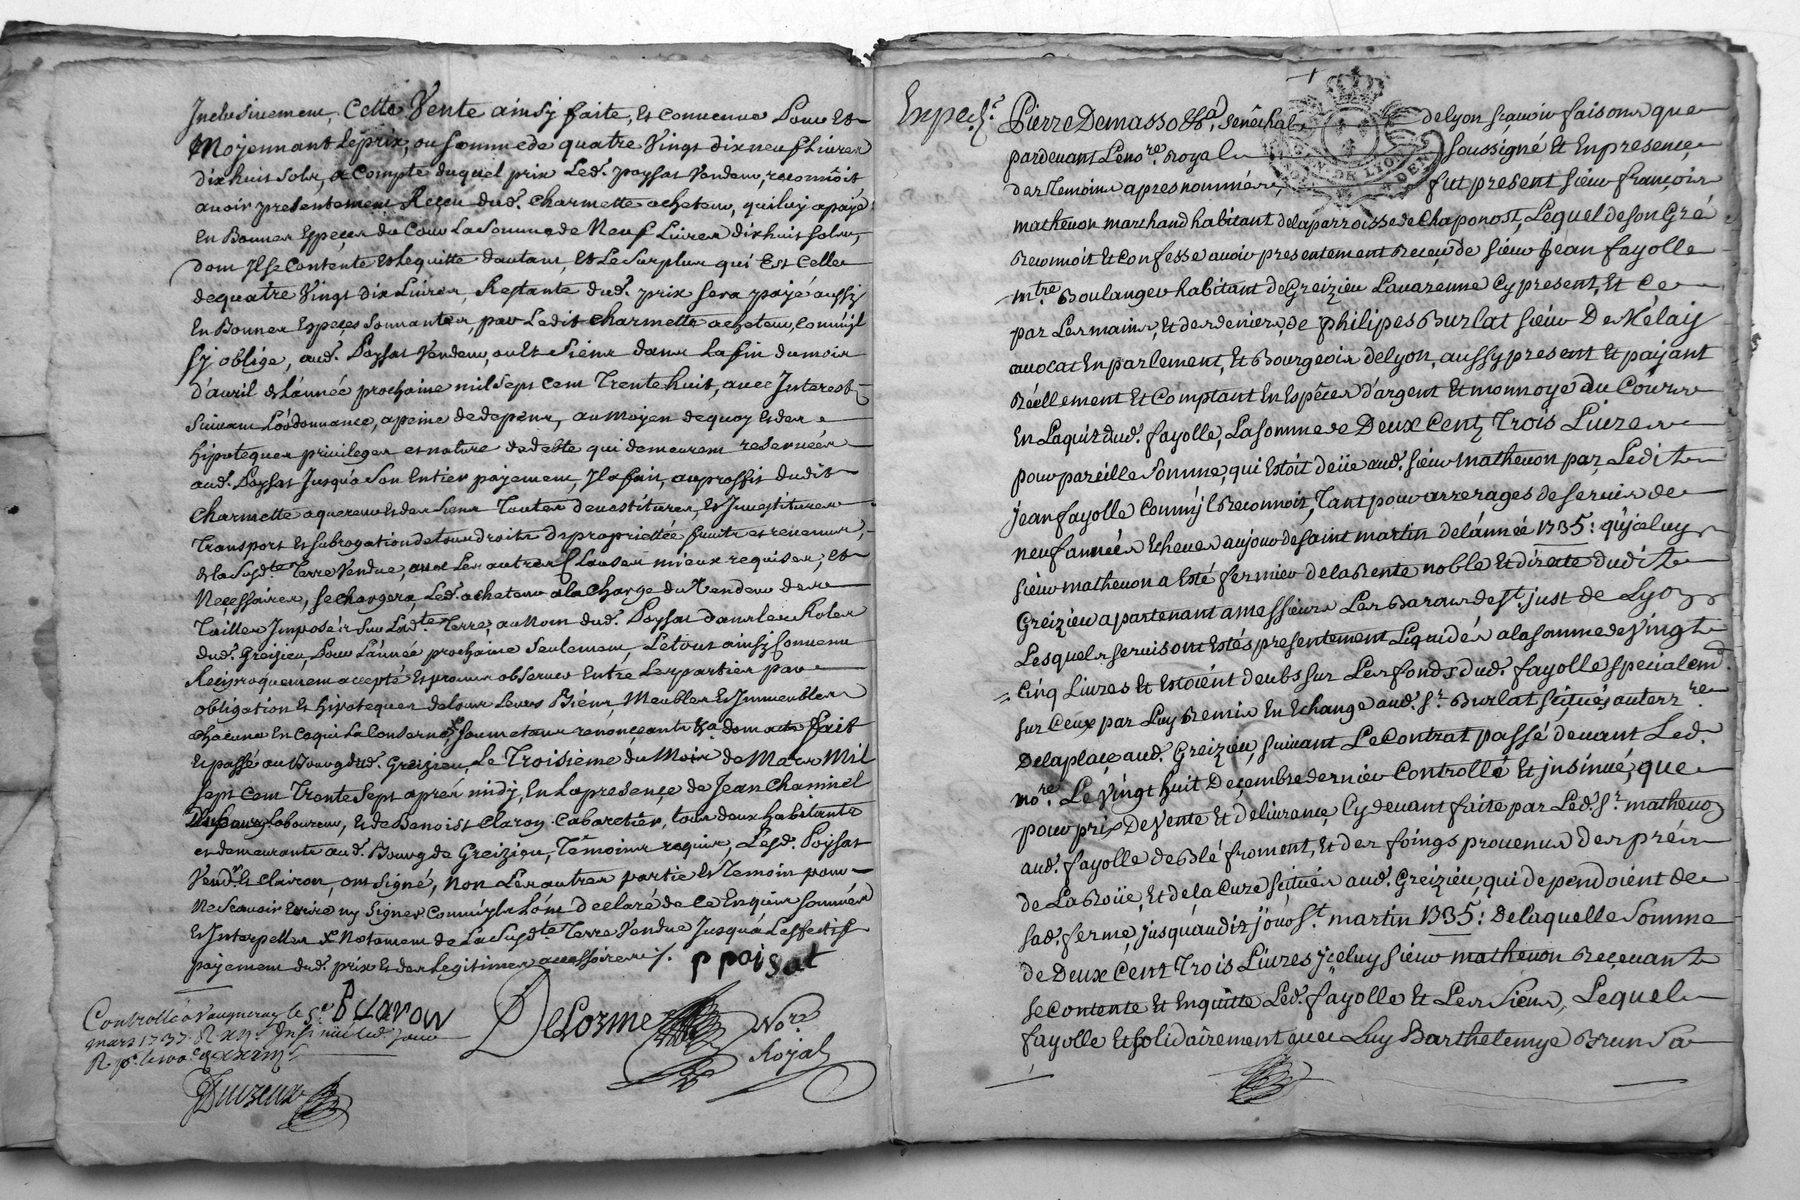 Inclusivement, Cette Vente ainsy faite, Et Convenue Pour Et
Moÿennant Le prix, ou somme de quatre Vingt dix neuf Livres
dix huit sols, a Compte duquel prix Led. poysat Vendeur, reconnoit
avoir presentement Reçeu dud. Charmette acheteur, qui luy a payé
En Bonnes Espeçes du Cour La Somme de Neuf Livres dix huit sols,
dont Il se Contente Et Le quitte d'autant, Et Le Surplus qui Est Celle
de quatre Vingt dix Livres, Restante dud. prix sera payé aussy
En Bonnes Espeçes Sonnantes, par Ledit Charmette acheteur, Comm'jl
sy oblige, aud. Poysat Vendeur, ou Es Siens dans La fin du mois
d'avril de L'année prochaine mil sept cent Trente huit, avec Interest
Suivant L'ordonnance, a peine de depens, au moyen de quoy Et des
hipoteques privileges et nature de debte qui demeurent reservées
aud. Poysat Jusqu'a Son Entier payement, Il a fait, au proffit dudit
Charmette acquereur Et des Siens Toutes devestitures, Et Investitures
Transport Et subrogation de tous droits de proprietée fruits et revenus,
de la Susd.te Terre Vendue, avec Les autres Clauses mieux requises, Et
Neçessaires, se chargera, Led. acheteur a la Charge du Vendeur des
Tailles Imposées Sur Lad.te Terre, au Nom dud. Poysat dans les Roles
dud. Greizieu, Pour L'année prochaine Seulement, Le tout ainsy Convenu
Reciproquement accepté Et promis observer Entre Les parties par
obligation Et hipoteques de tous Leurs Biens, Meubles Et Immeubles
chacune En Ce qui La Conserne, soumetans renonceants &a dont acte fait
Et passé au Bourg dud. Greizieu, Le Troisieme du Mois de Mars Mil
sept Cent Trente Sept apres midy, En La presençe de Jean Chaminel
Laboureur, Et de Benoist Claron Cabaretier, tous deux habitants
et demeurants aud. Bourg de Greizieu, Témoins requis, Lesd. Poysat
Vend.r Et Clairon, ont signé, Non Les autres partie Et Temoin pour
Ne Scavoir Ecrire ny Signer Comm'jls L'ont Declaré de Ce Enquis sommés
Et Interpellés & Notament de La Susd.te Terre Vendue Jusqu'a L'effectif
payement dud. prix Et des Legitimes accessoires ./.
P poisat
Controllé a Vaugneray le 5e
B Claron
DeLorme
No.re
Royal
mars 1737
Duvzeux
Exped.e
Pierre Demasso &a, Senêchal de Lyon sçavoir faisons que
pardevant Le no.re Royal soussigné Et En presençe
des Temoins apres nommés, fut present sieur françois
mathevon marchand habitant de la parroisse de Chaponost, Lequel de son Gré
Reconnoit Et Confesse avoir presentement Reçeu de sieur Jean fayolle
m.tre Boulanger habitant de Greizieu Lavarenne Cy present, Et Ce
par Les mains, Et des deniers, de philipes Burlat sieur De Mélay
avocat En parlement, Et Bourgeois de Lyon, aussy present Et païant
Réellement Et Comptant En Espêces d'argent Et monnoye du Cours
En L'aquit dud. fayolle, La somme de Deux Cent Trois Livres
pour pareille Somme, qui Estoit deüe aud. sieur mathevon par Ledit
jean fayolle Comm'jl Reconnoit, Tant pour arrerages de servis de
neuf années Echeues au jour de saint martin de l'année 1735: qu'jceluy
sieur mathevon a Esté fermier de la Rente noble Et directe dudit
Greizieu apartenant a messieurs Les Barons de St. just de Lyon
Lesquels servis ont Estés presentement Liquidés a la somme de vingt
Cinq Livres Et Estoient deubs sur Les fonds dud. fayolle specialem.t
sur Ceux par Luy Remis En Echange aud. Sr. Burlat sçitués au terr.re
De la plaçe aud. Greizieu, suivant Le Contrat passé devant Led.
no.re Le Vingt huit Deçembre dernier Controllé Et jnsinué, que
pour prix De Vente Et délivrance Cy devant faite par Led. Sr. mathevon
aud. fayolle de Blé froment, Et des foings provenus des prés
de La Broüe, Et de la Cure sçitués aud. Greizieu, qui dependoient de
sad. ferme, jusqu'audit jour St. martin 1735: De laquelle Somme
de Deux Cent Trois Livres jceluy sieur mathevon Reçevant
se contente Et En quitte Led. fayolle Et Les Siens, Lequel
fayolle Et solidairement avec Luy Barthelemye Brun Sa